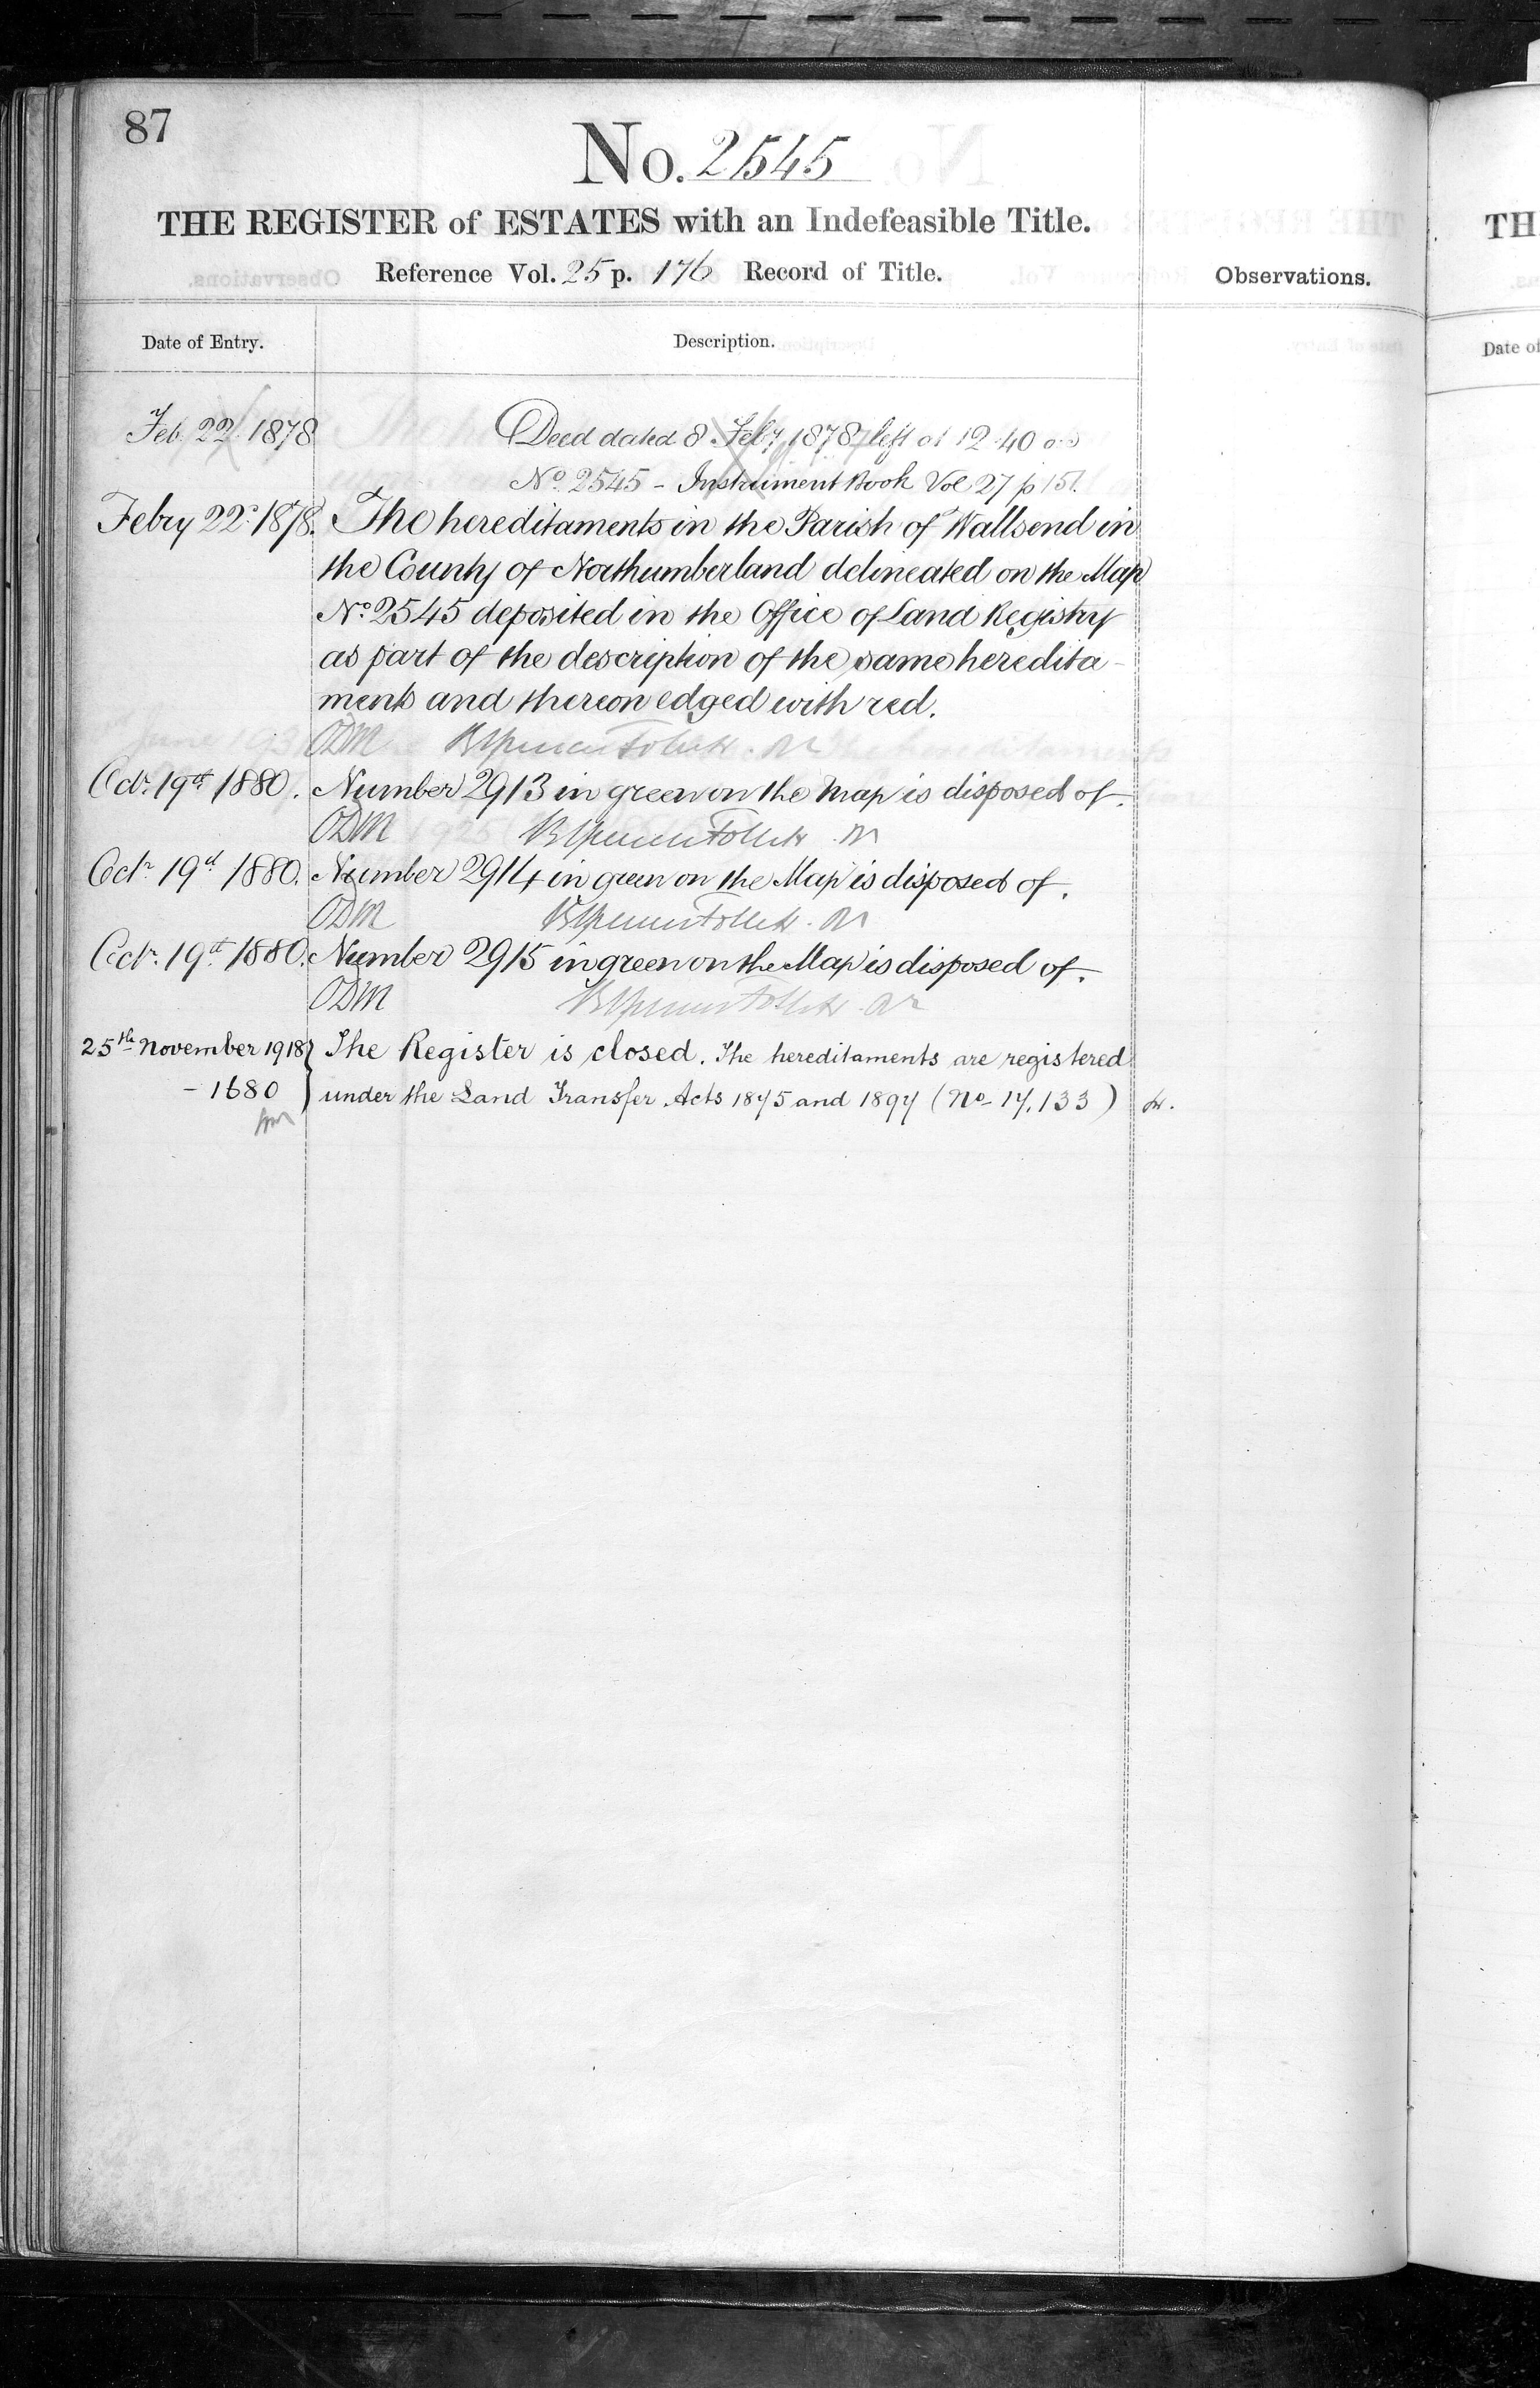 87
No. 2545
THE REGISTER of ESTATES with an Indefeasible Title.
Reference Vol. 25 p. 176 Record of Title.
Observations.
Date of Entry.
Description.
Feb. 22 1878 Deed dated 8 Feby 1878 left at 12.40
No. 2545 - Instrument Book Vol 27 p 151.
Febry 22d 1878. The hereditaments in the Parish of Wallsend in
the County of Northumberland delineated on the Map
No. 2545 deposited in the Office of Land Registry
as part of the description of the same heredita-
ments and thereon edged with red.
ODM
Octr. 19th 1880. Number 2913 in green on the Map is disposed of.
ODM
Octr 19th 1880. Number 2914 in green on the Map is disposed of.
ODM
Octr. 19th 1880. Number 2915 in green on the Map is disposed of.
ODM
25th November 1918 } The Register is closed. The hereditaments are registered
- 1680 } under the Land Transfer Acts 1875 and 1897 (No- 17,133)
TH
Date of